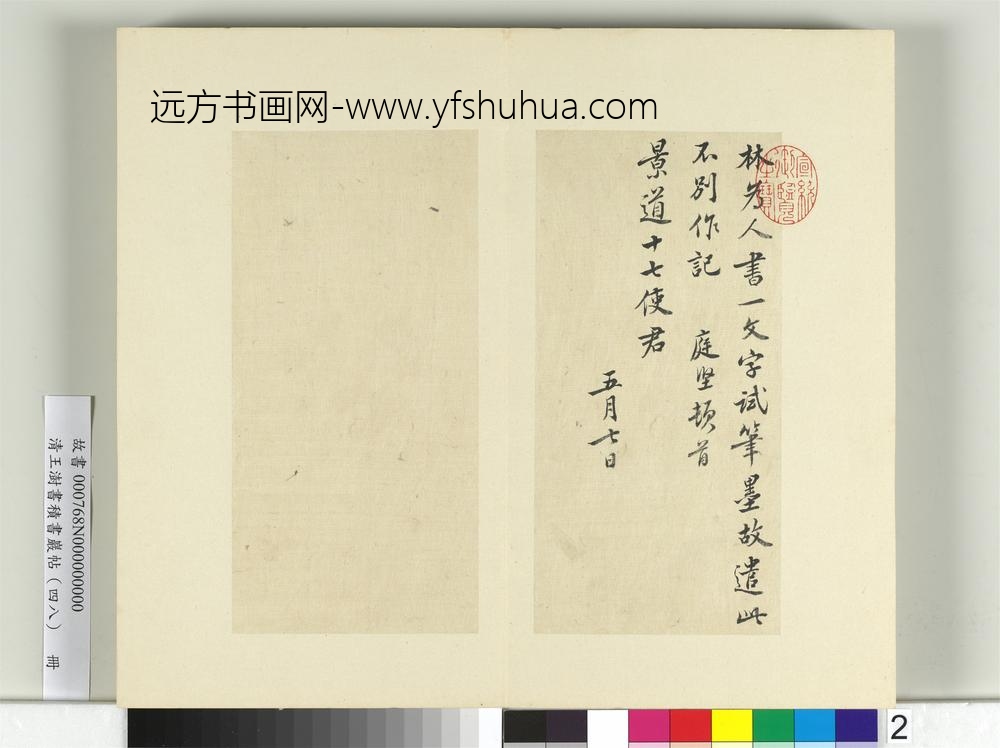 远方书画网-www.yfshuhua.com
林为人書一文字试筆墨故遣此
不别作記 庭坚頓首
景道十七使君
五月七日
宣統御覽之寶
故書 000768N000000000
清王澍書積書巖帖（四八） 冊
2